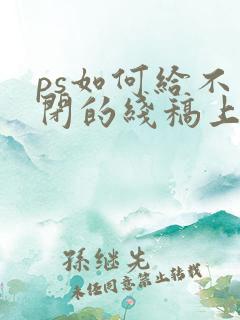 ps如何给不
闭的线稿上
孫继先
未经同意禁止转载